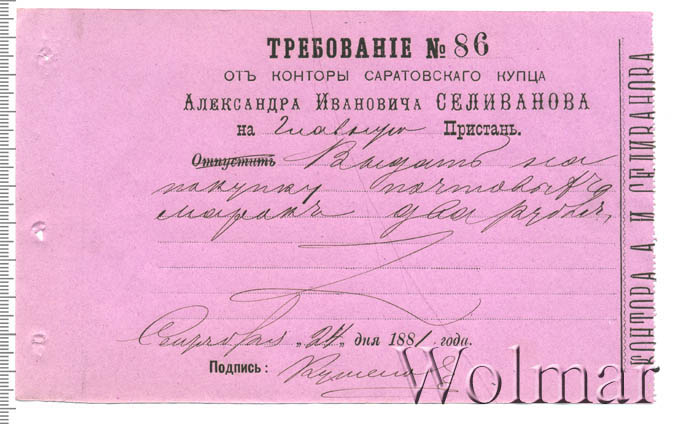 ТРЕБОВАНІЕ № 86
ОТЪ КОНТОРЫ САРАТОВСКАГО КУПЦА
АЛЕКСАНДРА ИВАНОВИЧА СЕЛИВАНОВА
на Главную Пристань.
Отпустить Выдать на
покупку почтовыхъ
марокъ два рубля,
"24" дня 1881 года.
Подпись:
КОНТОРА А, И СЕЛИВАНОВА
Wolmar